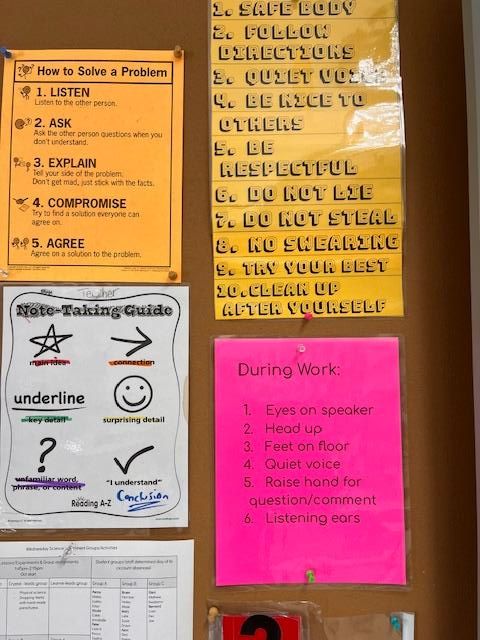 How to Solve a Problem
1. LISTEN
Listen to the other person.
2. ASK
Ask the other person questions when you
don't understand.
3. EXPLAIN
Tell your side of the problem.
Don't get mad, just stick with the facts.
4. COMPROMISE
Try to find a solution everyone can
agree on.
5. AGREE
Agree on a solution to the problem.
1. SAFE BODY
2. FOLLOW
DIRECTIONS
3. QUIET VOICE
4. BE NICE TO
OTHERS
5. BE
RESPECTFUL
6. DO NOT LIE
7. DO NOT STEAL
8. NO SWEARING
9. TRY YOUR BEST
10. CLEAN UP
AFTER YOURSELF
Teacher
Note-Taking Guide
main idea
connection
underline
key detail
surprising detail
?
unfamiliar word,
phrase, or content
"I understand"
Conclusion
Reading A-Z
During Work:
1. Eyes on speaker
2. Head up
3. Feet on floor
4. Quiet voice
5. Raise hand for
question/comment
6. Listening ears
Group A
Group B
Group C